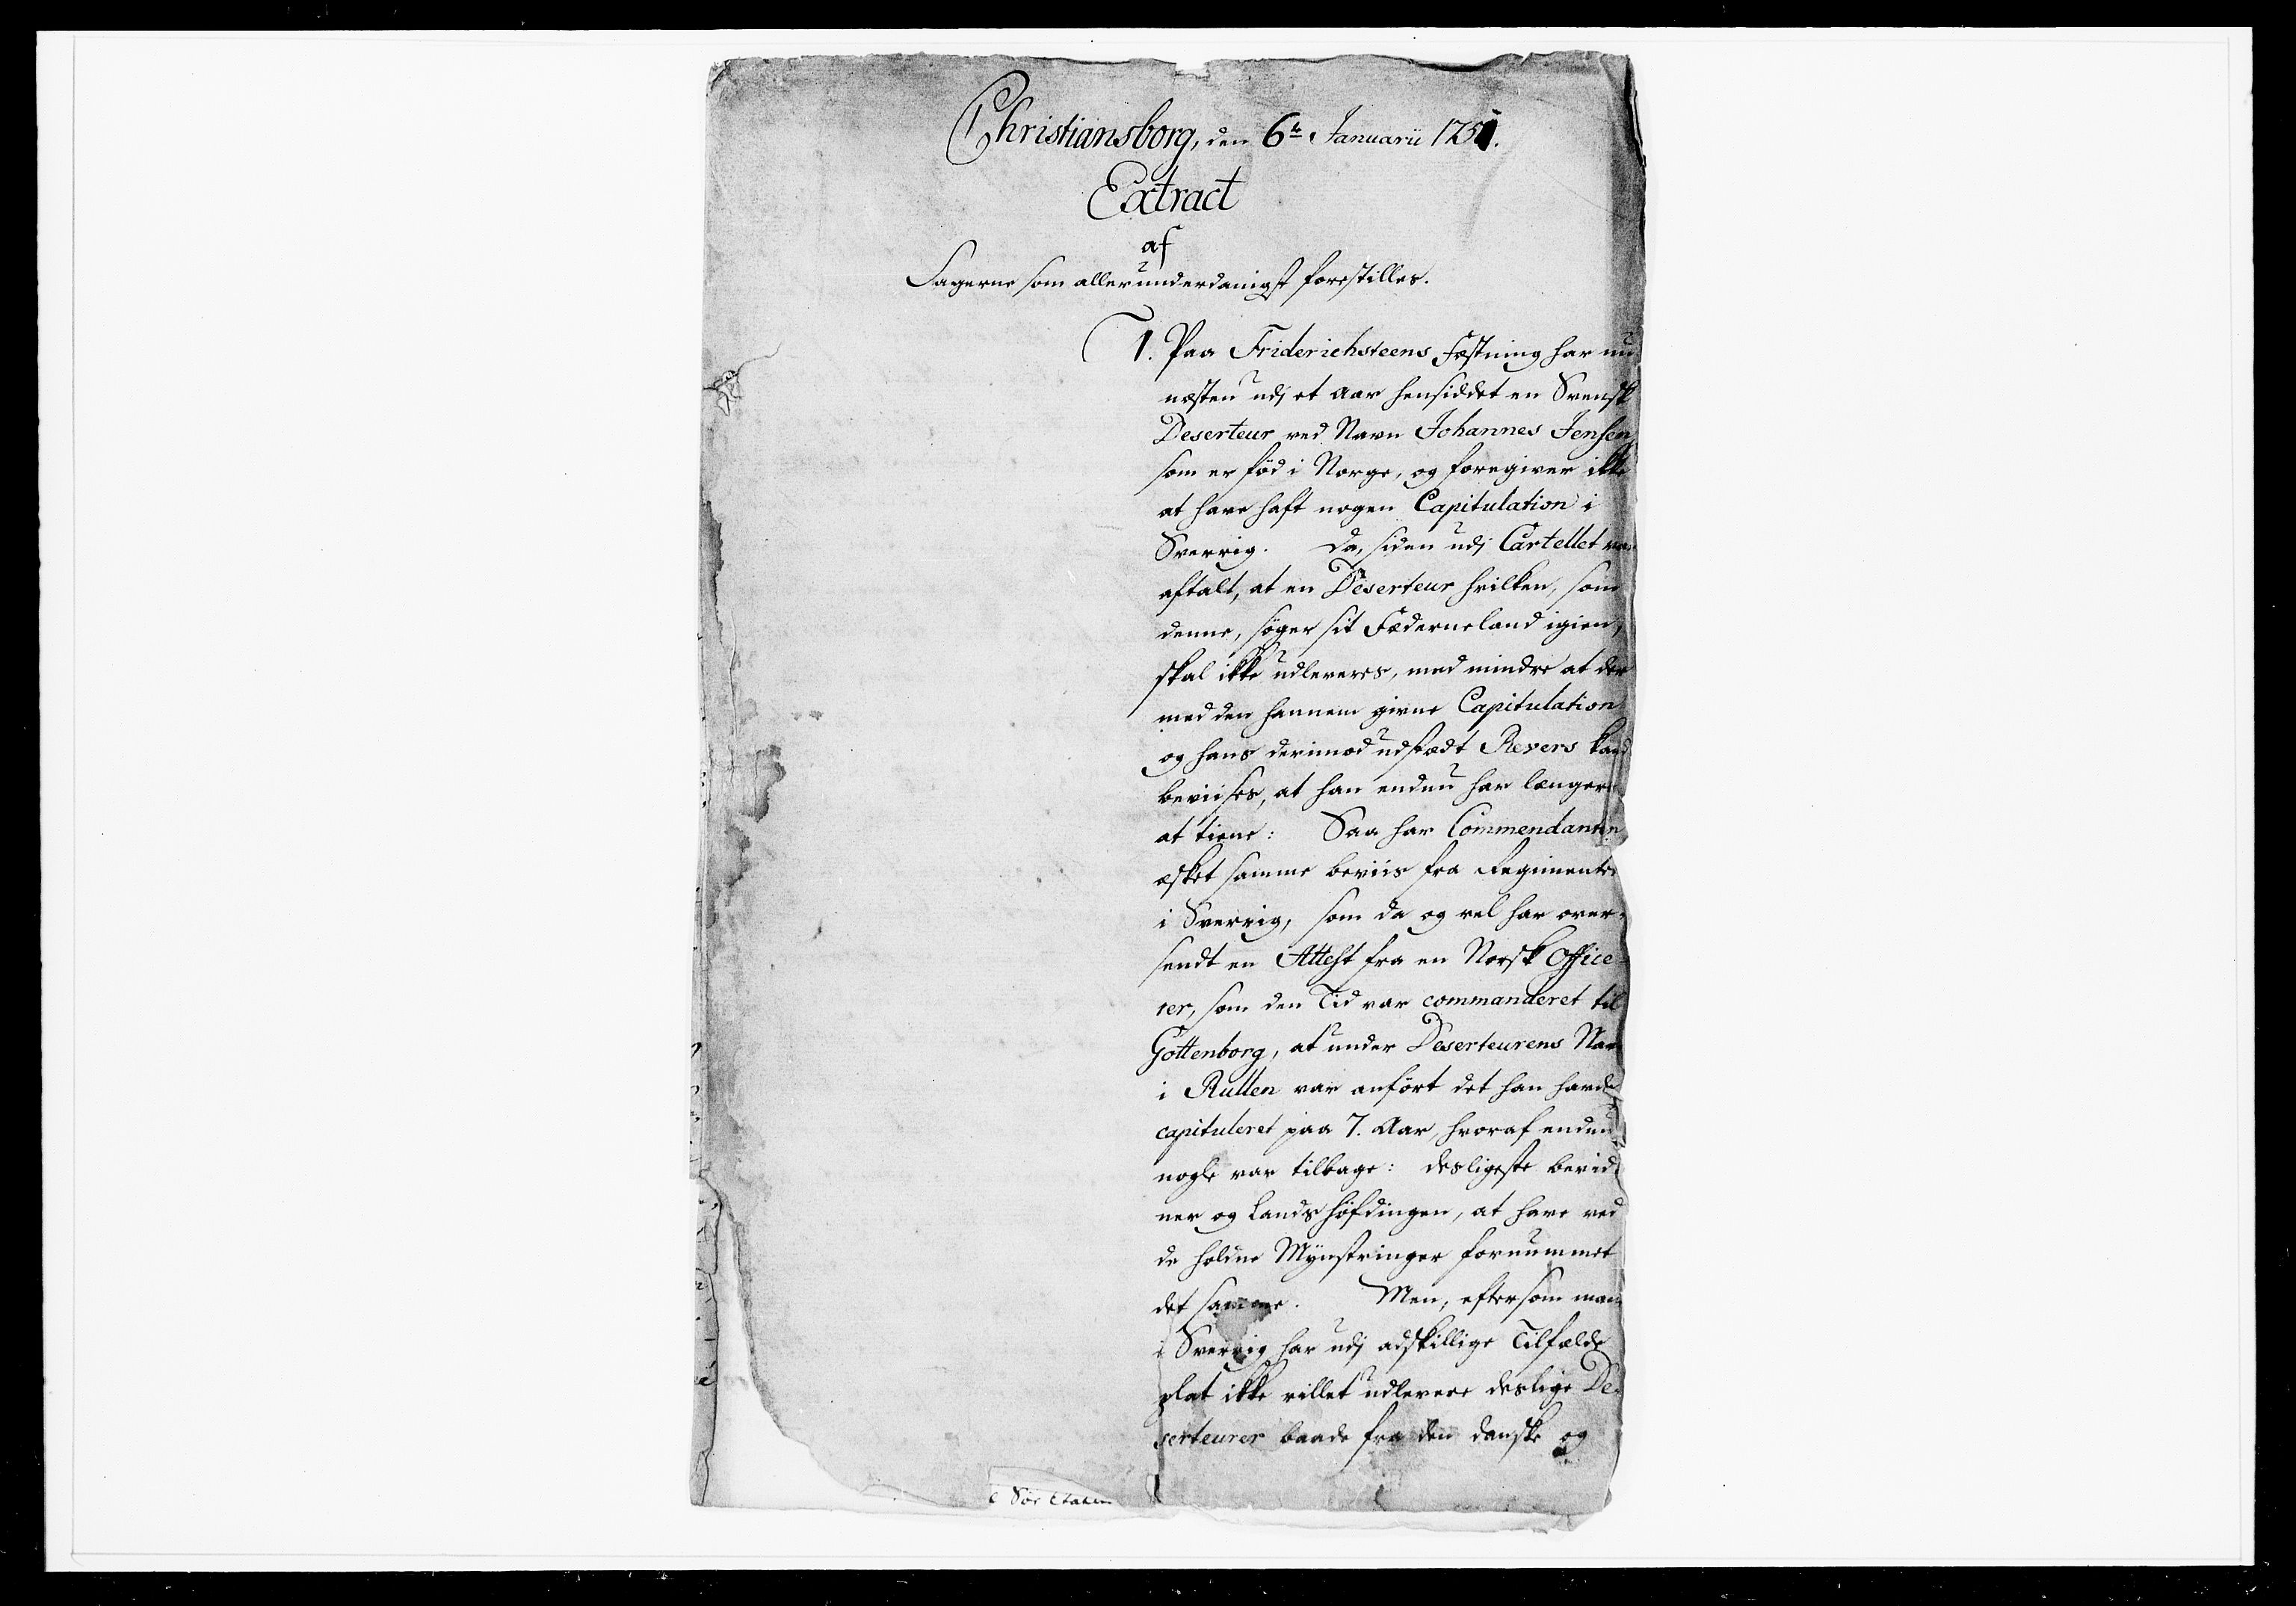 Christiansborg, den 6te Januarii 1751.
Extract
af
Sagerne som allerunderdanigst forestilles.
1. Paa Friderichsteens Fæstning har nu
næsten udj et Aar hensiddet en Svensk
Deserteur ved Navn Johannes Jensen
som er fød i Norge, og foregiver ikke
at have haft nogen Capitulation i
Sverrig. Da, siden udj Cartellet var
aftalt, at en Deserteur hvilken, som
denne, søger sit Fæderneland igien,
skal ikke udleveres, med mindre at der
med den hannem givne Capitulation
og hans derimod udstædt Revers kand
beviises, at han endnu har længere
at tiene: Saa har Commendanten
æsket samme beviis fra Regimentet
i Sverrig, som da og vel har over-
sendt en Attest fra en Norsk Office-
rer, som den Tid var commanderet til
Gøttenborg, at under Deserteurens Navn
i Rullen var anført det han havde
capituleret paa 7. Aar, hvoraf endnu
nogle var tilbage: desligeste bevid-
ner og Landshøfdingen, at have ved
de holdne Mynstringer fornummet
det samme. Men, eftersom man
i Sverrig har udj adskillige Tilfælde
plat ikke villet udlevere deslige De-
serteurer baade fra den danske og